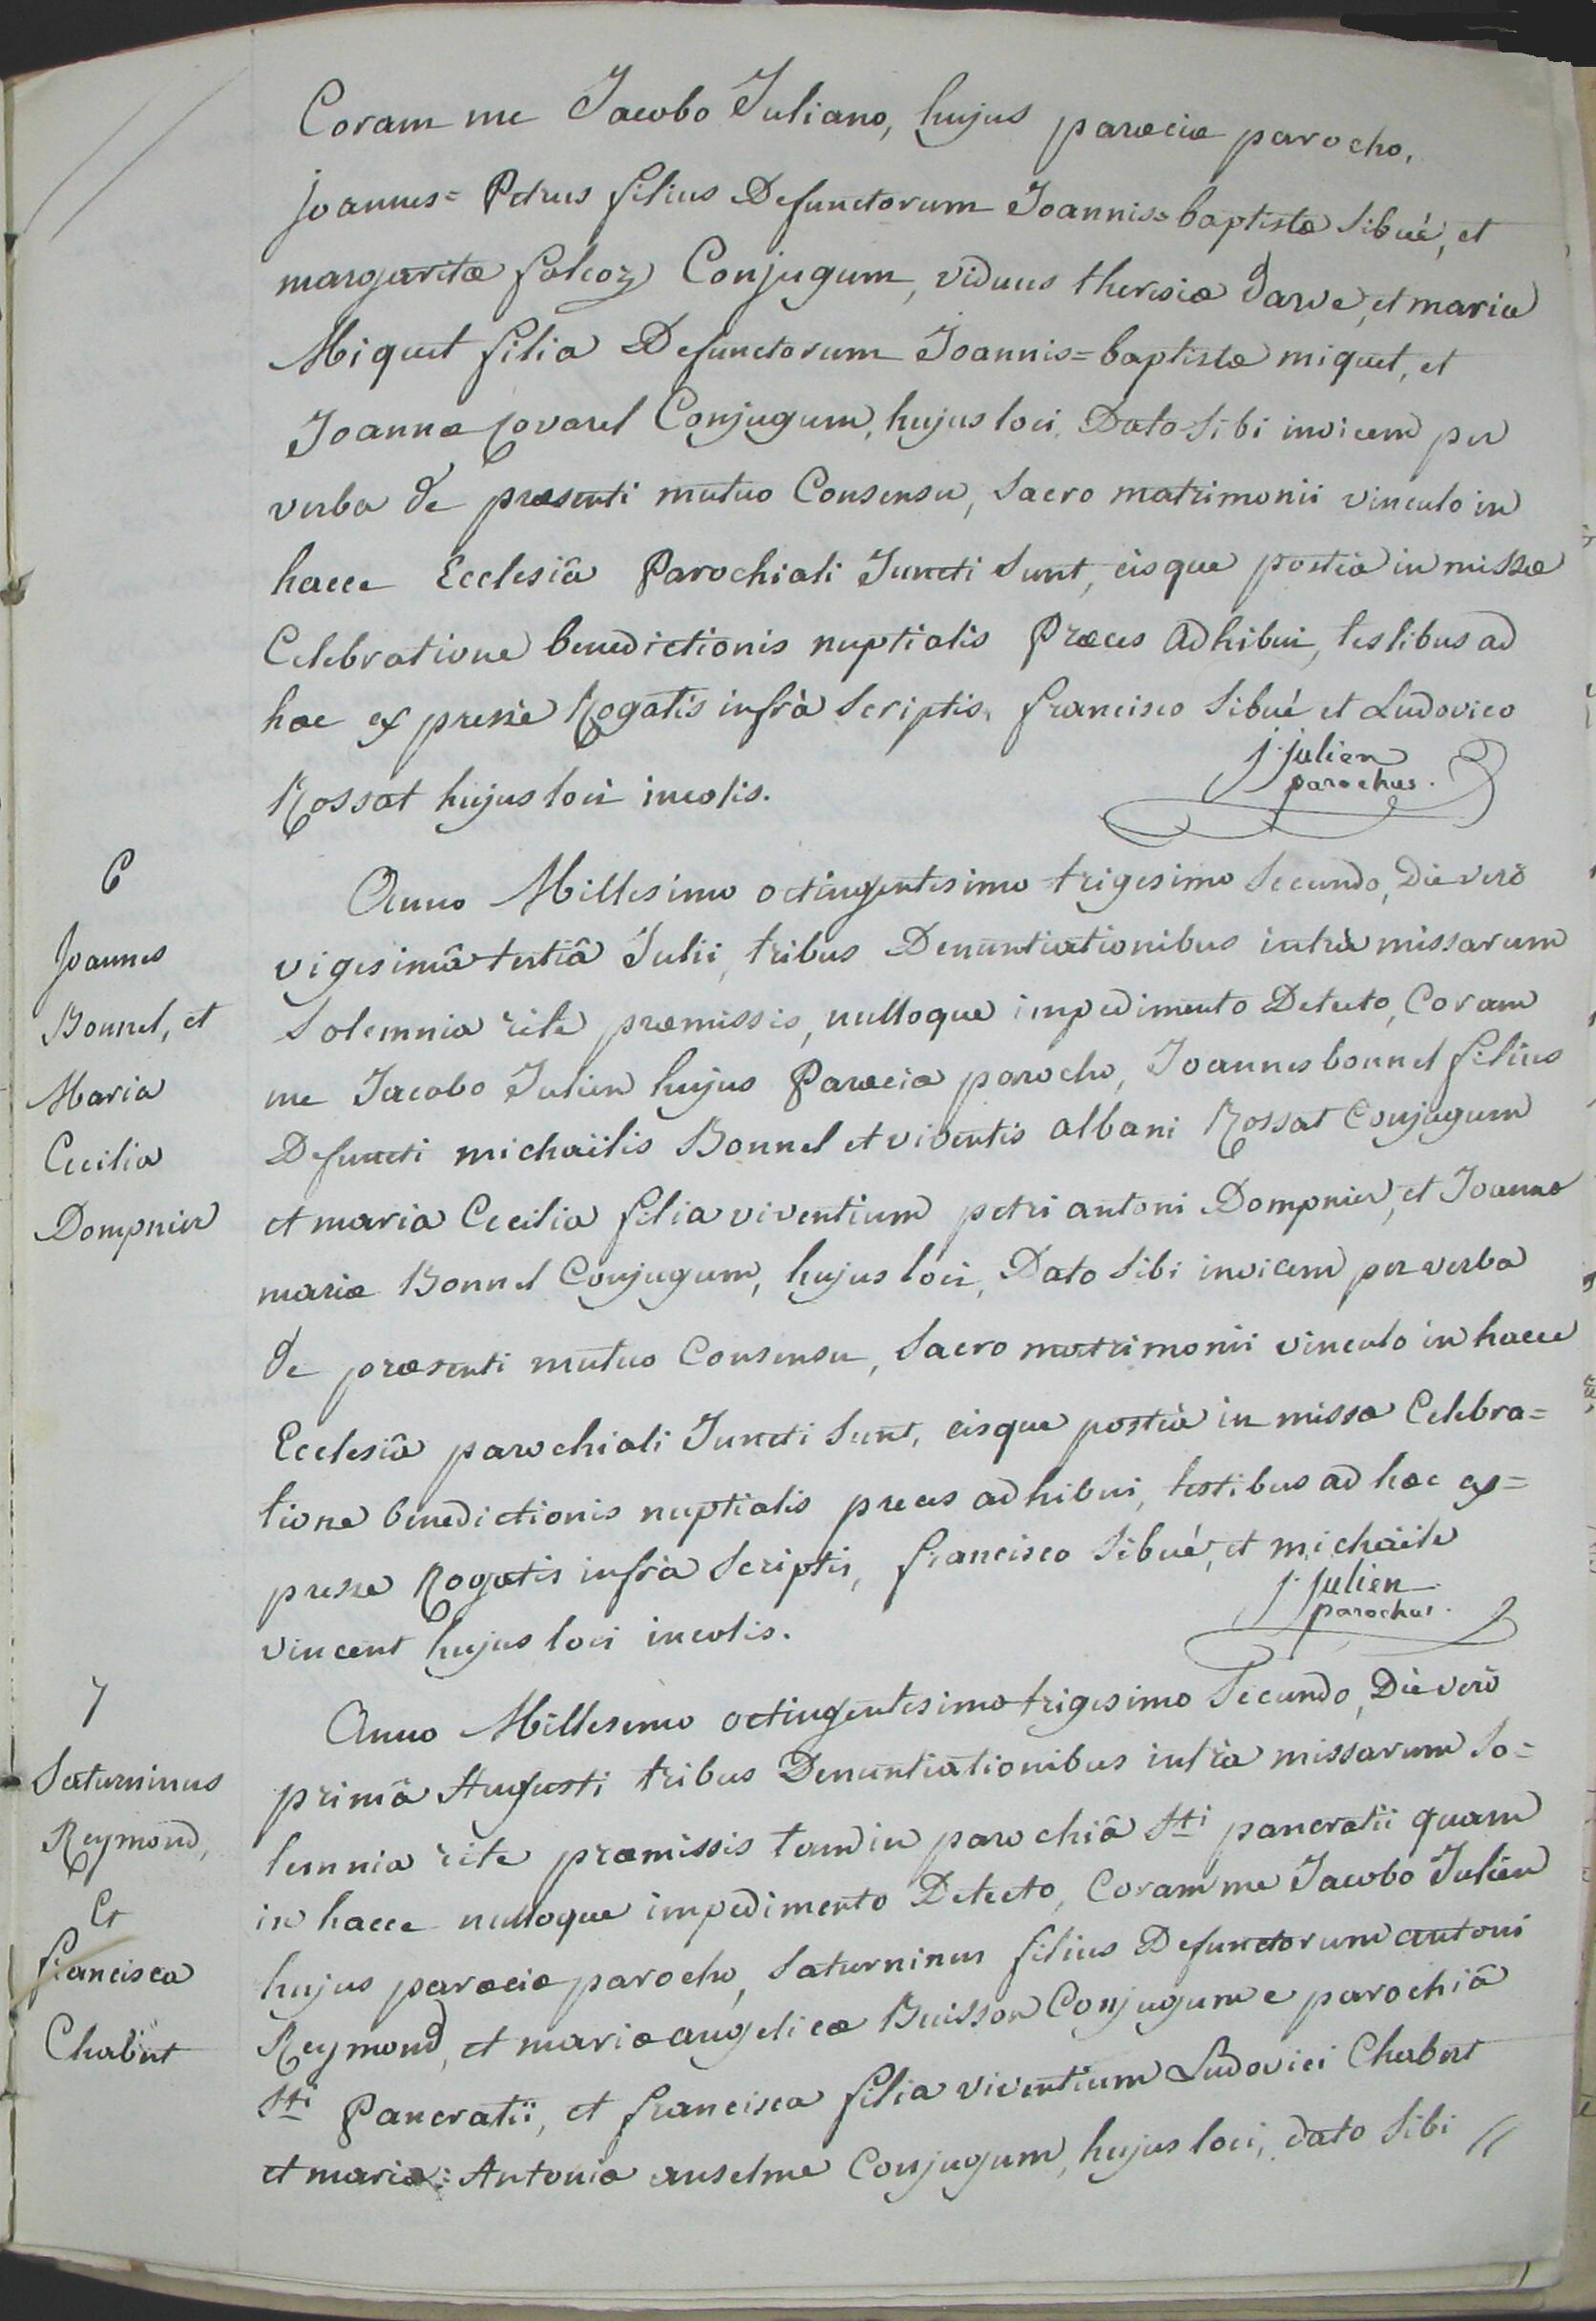 Coram me Jacobo Juliano, hujus parœciæ parocho,
joannes= Petrus filius Defunctorum Joannis=baptistæ Sibué, et
margaritæ falcoz Conjugum, viduus theresiæ darve, et maria
Miquet filia Defunctorum Joannis=baptistæ miquet, et
Joannæ covarel Conjugum, hujus loci, Dato Sibi invicem per
verba de præsenti mutuo Consensu, Sacro matrimonii vinculo in
hacce Ecclesiâ Parochiali Juncti Sunt, eisque posteà in missæ
Celebratione benedictionis nuptialis Præces adhibui, testibus ad
hoc expressè Rogatis infrà Scriptis, francisco Sibué et Ludovico
Rossat hujus loci incolis.
j. julien
parochus.
6
Joannes
Bonnel, et
Maria
Cecilia
Dompnier
Anno Millesimo octingentesimo trigesimo Secundo, Die verò
vigesimâ tertiâ Julii, tribus Denuntiationibus intrà missarum
Solemnia rite præmissis, nulloque impedimento Detecto, Coram
me Jacobo Julien hujus Parœciæ parocho, Joannes bonnel filius
Defuncti michaëlis Bonnel et viventis albani Rossat Conjugum
et maria Cecilia filia viventium petri antoni Dompnier, et Joannæ
mariæ Bonnel Conjugum, hujus loci, Dato Sibi invicem per verba
de præsenti mutuo Consensu, Sacro matrimonii vinculo in hacce
Ecclesiâ parochiali Juncti Sunt, eisque posteà in missæ Celebra=
tione benedictionis nuptialis preces adhibui, testibus ad hoc ex=
presse Rogatis infrà Scriptis, francisco Sibué, et michaële
vincent hujus loci incolis.
j. julien
parochus.
7
Saturninus
Reymond,
Et
francisca
Chabert
Anno Millesimo octingentesimo trigesimo Secundo, Die verò
primâ Augusti tribus Denuntiationibus intrà missarum So=
lemnia rite præmissis tam in parochiâ Sti pancratii quam
in hacce nulloque impedimento Detecto, Coram me Jacobo Julien
hujus parœciæ parocho, Saturninus filius Defunctorum antoni
Reymond, et mariæ angelicæ Buisson Conjugum e parochiâ
Sti Pancratii, et francisca filia viventium Ludovici Chabert
et mariæ: Antoniæ anselme Conjugum, hujus loci, dato Sibi //